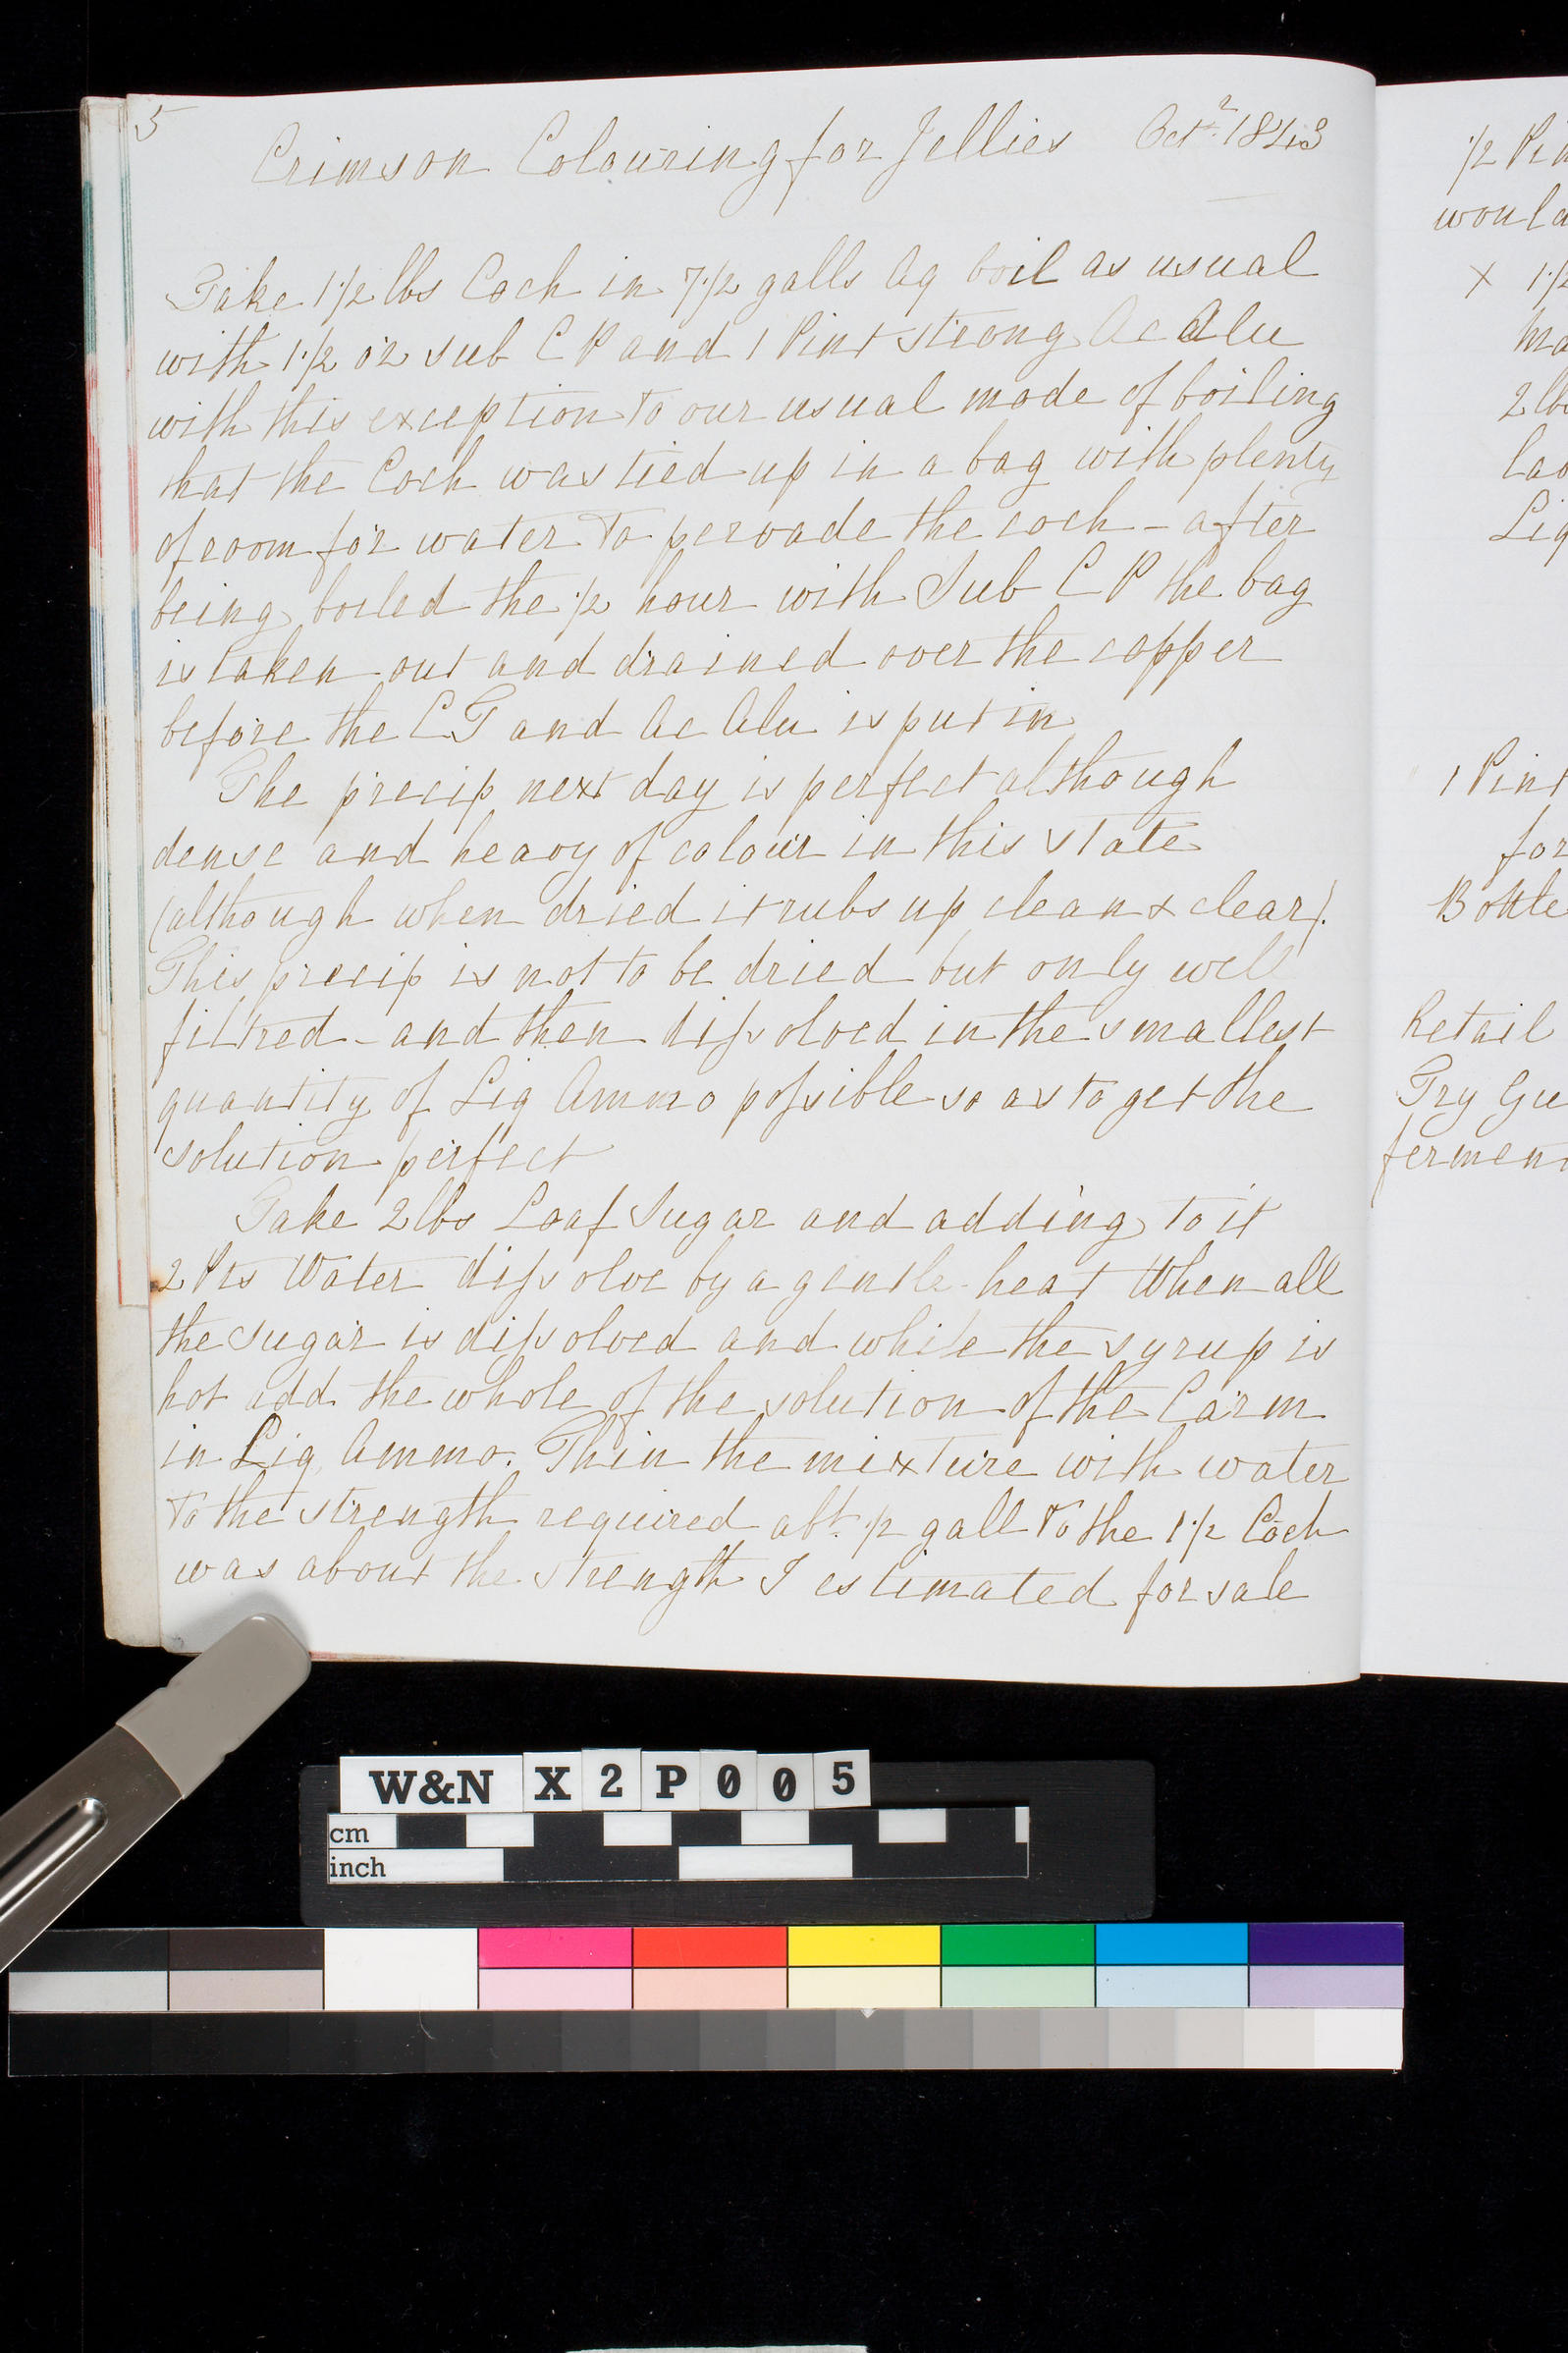 5
Crimson Colouring for Jellies Octr 1843
Take 1 1/2 lbs Coch in 7 1/2 galls Aq boil as usual
with 1 1/2 oz sub C P and 1 Pint strong Ac Alu
with this exception to our usual mode of boiling
that the Coch was tied up in a bag with plenty
of room for water to pervade the coch – after
being boiled the 1/2 hour with Sub C P the bag
is taken out and drained over the copper
before the C T and Ac Alu is put in
The precip next day is perfect although
dense and heavy of colour in this state
(although when dried it rubs up clean & clear).
This precip is not to be dried but only well
filtred – and then dissolved in the smallest
quantity of Liq Ammo possible so as to get the
solution perfect
Take 2 lbs Loaf Sugar and adding to it
2 Pts Water dissolve by a gentle heat When all
the sugar is dissolved and while the syrup is
hot add the whole of the solution of the Carm
in Liq Ammo. Thin the mixture with water
to the strength required abt. 1/2 gall to the 1 1/2 Coch
was about the strength I estimated for sale
1/2 Pin
would
x 1 1/2
ma
2 lbs
Liq
1 Pint
for
Bottle
Retail
Try Gu
ferment
W&N X2P005
cm
inch